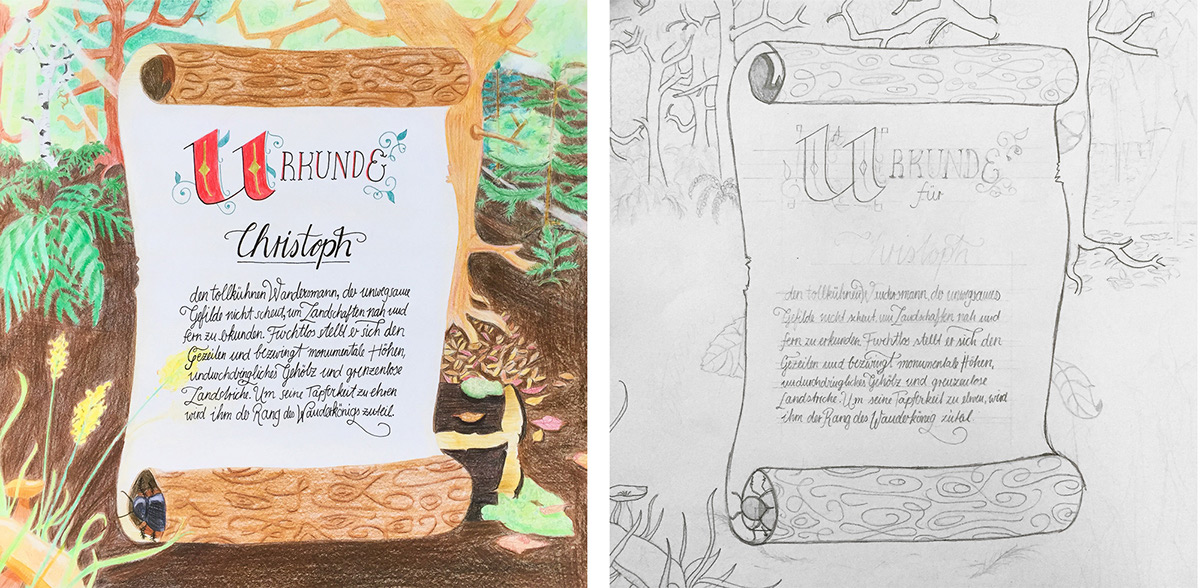 URKUNDE
Christoph
den tollkühnen Wandersmann, der unwegsame
Gefilde nicht scheut, um Landschaften nah und
fern zu erkunden. Furchtlos stellt er sich den
Gezeiten und bezwingt monumentale Höhen,
undurchdringliches Gehölz und grenzenlose
Landstriche. Um seine Tapferkeit zu ehren
wird ihm der Rang des Wanderkönigs zuteil.
URKUNDE
für
Christoph
den tollkühnen Wandersmann, der unwegsames
Gefilde nicht scheut, um Landschaften nah und
fern zu erkunden. Furchtlos stellt er sich den
Gezeiten und bezwingt monumentale Höhen,
undurchdringliches Gehölz und grenzenlose
Landstriche. Um seine Tapferkeit zu ehren, wird
ihm der Rang des Wanderkönig zuteil.